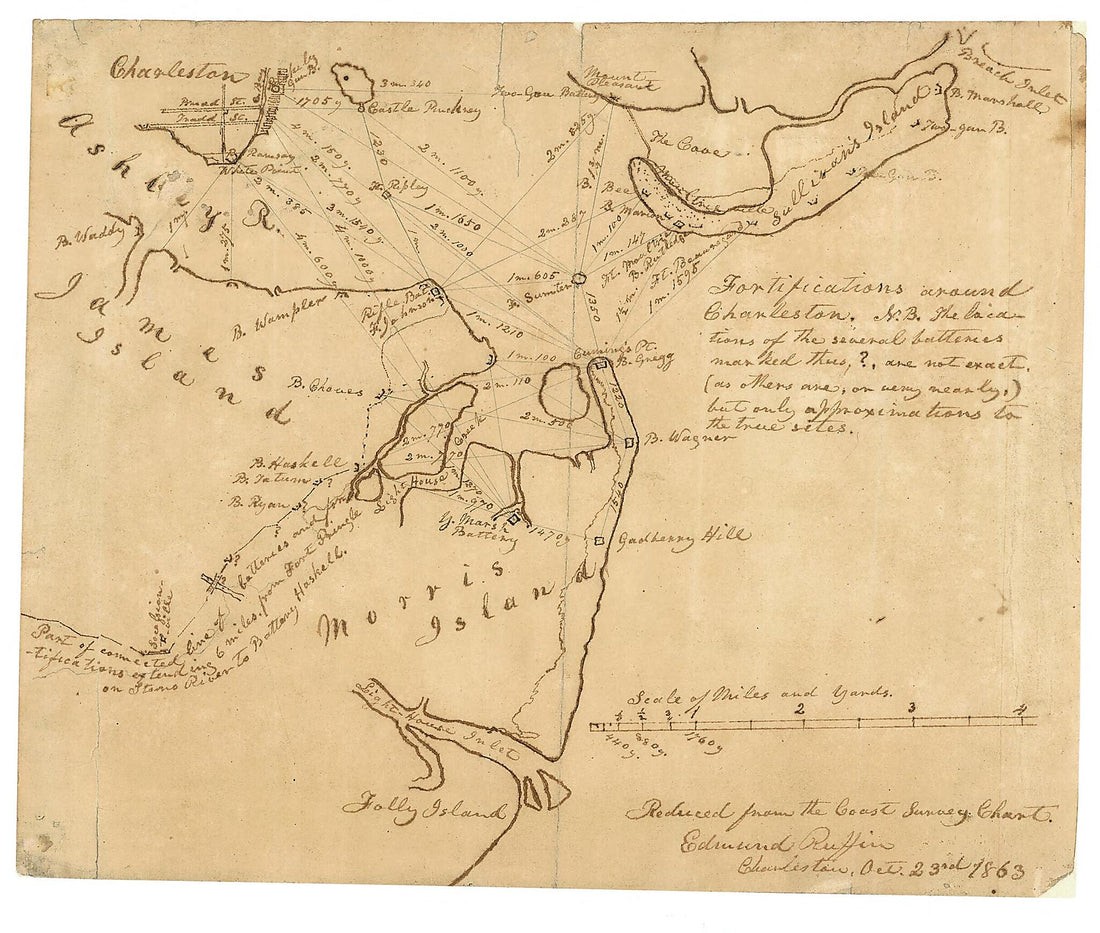 Charleston
Broad St.
Tradd St.
1705 y
3 m 340
Castle Pinckney
Two Gun Battery
Mount
Pleasant
Breach Inlet
B. Marshall
Two-gun B.
Sullivan's Island
The Cove
Moultrieville
Ashley R.
B. Ramsay
White Point
B. Waddy
1 m.
230
Ft. Ripley
2 m. 1100 y.
4 m. 150 y.
2 m. 770 y
2 m. 385
3 m. 1540 y.
4 m. 1000 y.
4 m. 600 y.
1 m. 1650
2 m. 1000
2 m. 825 y
2 m. 287
Bee
B. Marion
1 m. 100
1 m. 147
Ft. Moultrie
B. Rutledge
Ft. Beauregard
1 m. 1595
1 m. 605
Ft. Sumter
1350
James
Island
B. Wampler
Rifle Bat
Ft. Johnson
1 m. 1210
1 m. 100
Cuming's Pt.
B. Gregg
Fortifications around
Charleston. N.B. The loca-
tions of the several batteries
marked thus, ?, are not exact,
(as others are, or very nearly,)
but only approximations to
the true sites.
B. Cheves
2 m. 110
1220
B. Wagner
2 m. 770
Creek
Light House
B. Haskell
B. Tatum ?
B. Ryan
1 m. 970
Y. Marsh
Battery
1470 y
1540
Gadberry Hill
Morris
Island
Part of connected line of batteries and for-
tifications extending 6 miles from Fort Pringle
on Stono River to Battery Haskell.
Light House Inlet
Folly Island
Scale of Miles and Yards.
1 2 3 4
440 y. 880 y. 1760 y
Reduced from the Coast Survey Chart.
Edmund Ruffin
Charleston, Oct. 23rd 1863